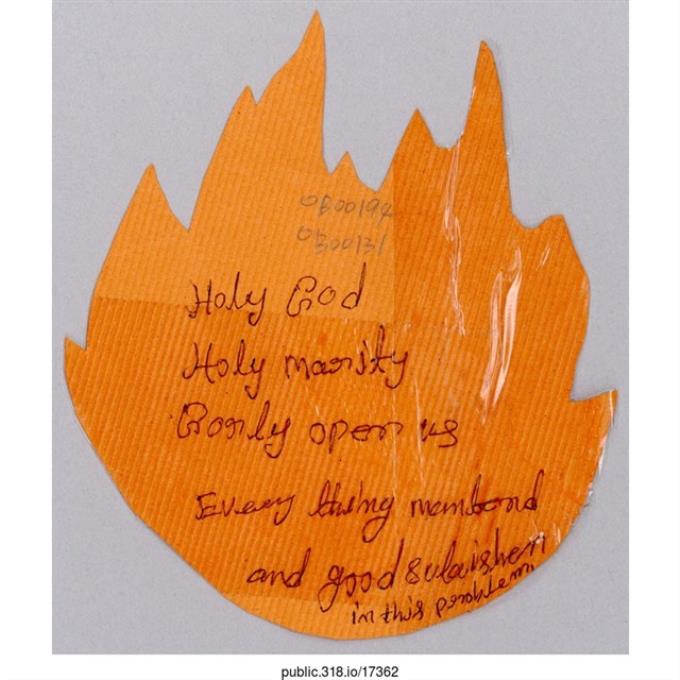 0B00194
0B00131
Holy God
Holy marity
Bonly open us
Every thing mambond
and good sulaishen
in this problem
public.318.io/17362